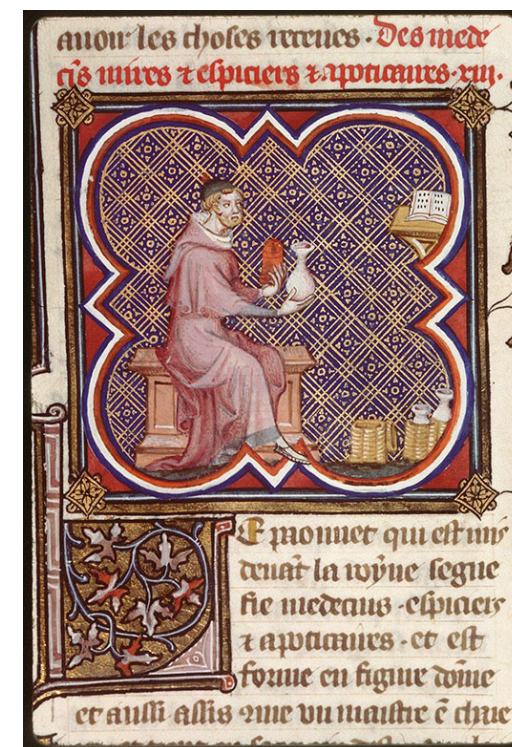 auoir les choses receues. Des mede
cīs mires ⁊ espiciers ⁊ apoticaires. xiii.
Le paonnet qui est mis
deuāt la royne segne
fie medecins. espiciers
⁊ apoticaires. et est
forme en figure dōme
et aussi assis ꝯme vn maistre ē chaie